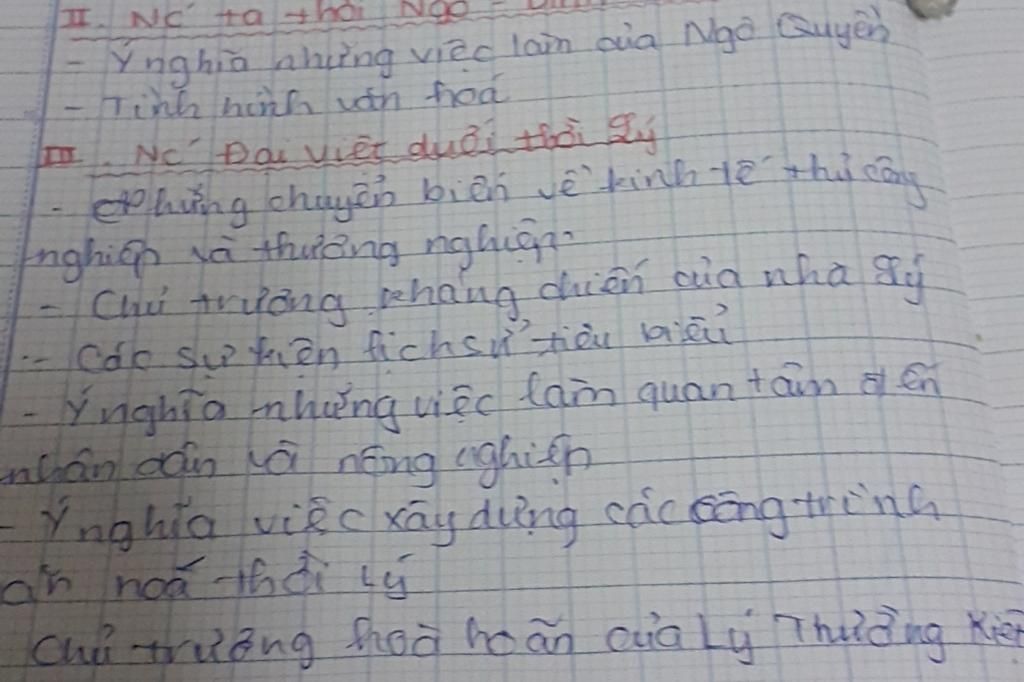 II. NC ta thời Ngô - Đinh
- Ý nghĩa những việc làm của Ngô Quyền
- Tình hình văn hoá
III. NC Đại Việt dưới thời Lý
- Những chuyển biến về kinh tế thủ công
nghiệp và thương nghiệp.
- Chủ trương kháng chiến của nhà Lý
- Các sự kiện lịch sử tiêu biểu
- Ý nghĩa những việc làm quan tâm đến
nhân dân và nông nghiệp
- Ý nghĩa việc xây dựng các công trình
ăn hoá thời Lý
Chủ trương hoà hoãn của Lý Thường Kiệt